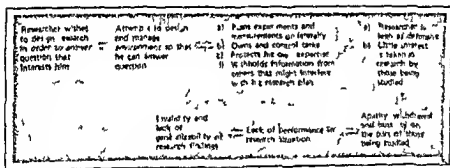 Researcher wishes
to design research
in order to answer
question that
interests him
Attempts to design
and manage
environment so that
he can answer
question
a) Plans experiments and
measurements unilaterally
b) Owns and controls tasks
c) Protects his own expertise
d) Withholds information from
others that might interfere
with his research plan
a) Researcher is
seen as defensive
b) Little interest
is taken in
research by
those being
studied
Invalidity and
lack of
generalizability of
research findings
Lack of performance for
research situation
Apathy withdrawal
and loss of
the part of those
being studied